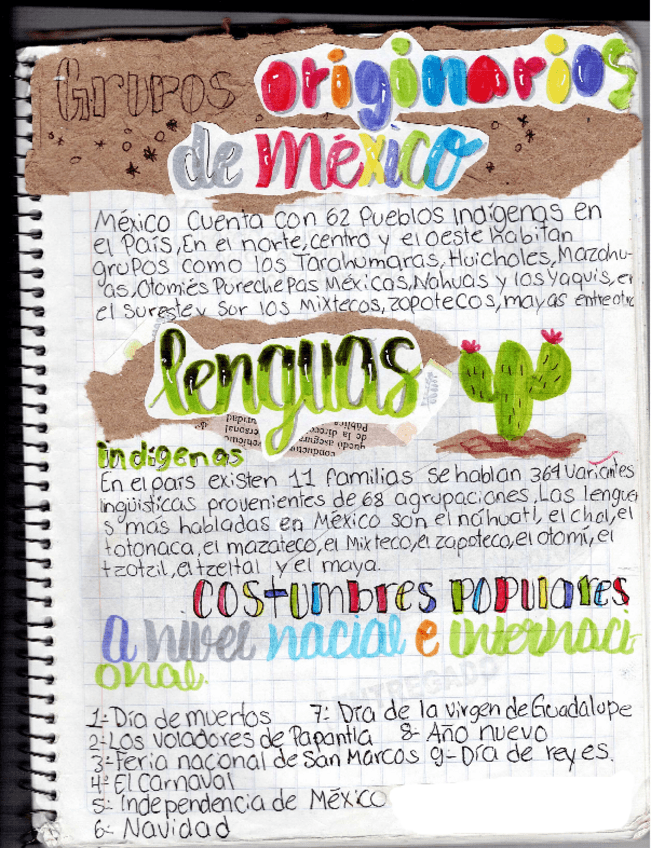 Grupos originarios
de México
México Cuenta con 62 Pueblos indígenas en
el País, En el norte, centro y el oeste habitan
grupos como los Tarahumaras, Huicholes, Mazahu-
as, Otomiés Purechepas Méxicas, Nahuas y los yaquis, en
el sureste y Sor los Mixtecos, zapotecos, mayas entre otro
lenguas
indígenas
En el país existen 11 familias se hablan 364 Variantes
lingüisticas provenientes de 68 agrupaciones, Las lengua
s más habladas en México son el náhuatl, el chol, el
totonaca, el mazateco, el Mixteco, el zapoteco, el otomí, el
tzotzil, el tzeltal y el maya.
Costumbres populares
a nivel nacial e internaci
onal.
1- Día de muertos 7- Día de la virgen de Guadalupe
2- Los voladores de Papantla 8- Año nuevo
3- Feria nacional de San Marcos 9- Día de reyes.
4- El Carnaval
5- Independencia de México
6- Navidad